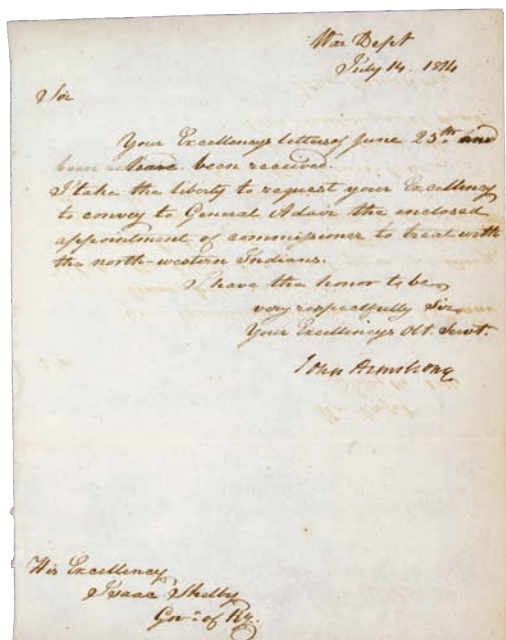 War Dept
July 14. 1814
Sir
Your Excellency's letters of June 25th
have been received.
I take the liberty to request your Excellency
to convey to General Adair the enclosed
appointment of commissioner to treat with
the north-western Indians.
I have the honor to be,
very respectfully Sir,
Your Excellency's Obt. Servt.
John Armstrong
His Excellency
Isaac Shelby
Govr. of Ky.